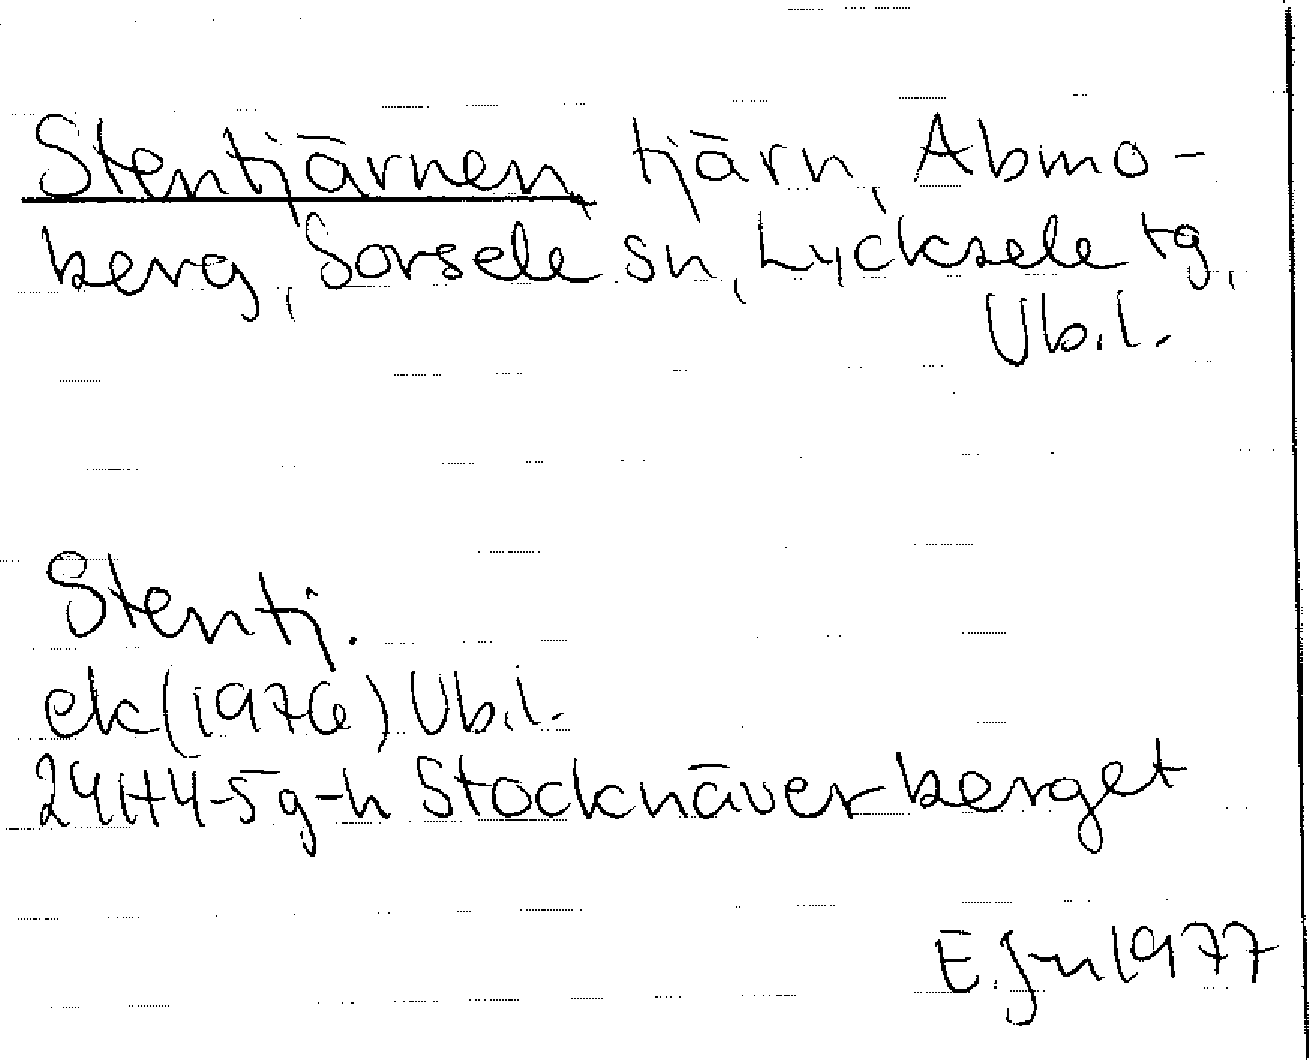 Stentjärnen tjärn, Abmo-
berg, Sorsele sn, Lycksele tg,
Vb.l.
Stentj.
ek(1976) Vb.l.
24H4-5g-h Stocknäverberget
E.Jn 1977